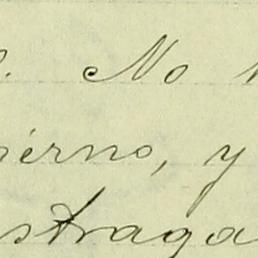 No
ierno, y
straga